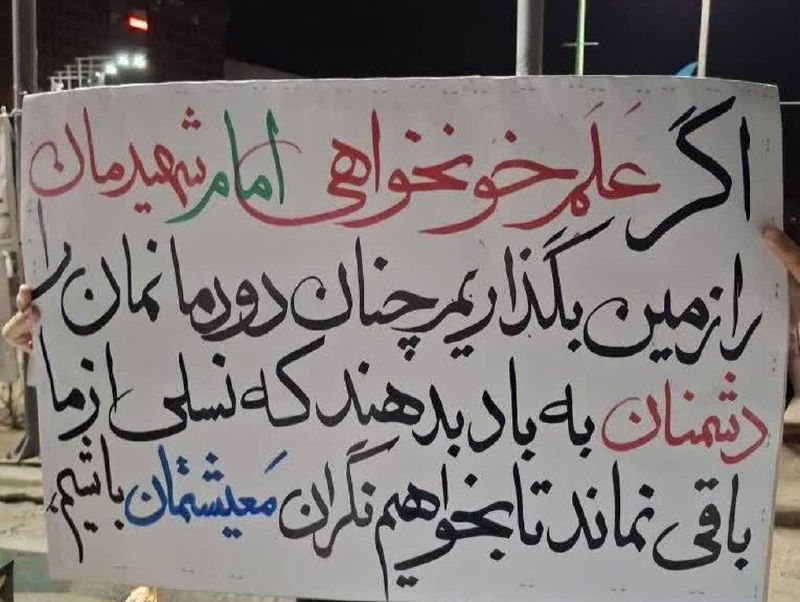 اگر عَلَم خونخواهی امام شهیدمان
را زمین بگذاریم چنان دودمانمان را
دشمنان به باد بدهند که نسلی از ما
باقی نماند تا بخواهیم نگران مَعیشتمان باشیم.